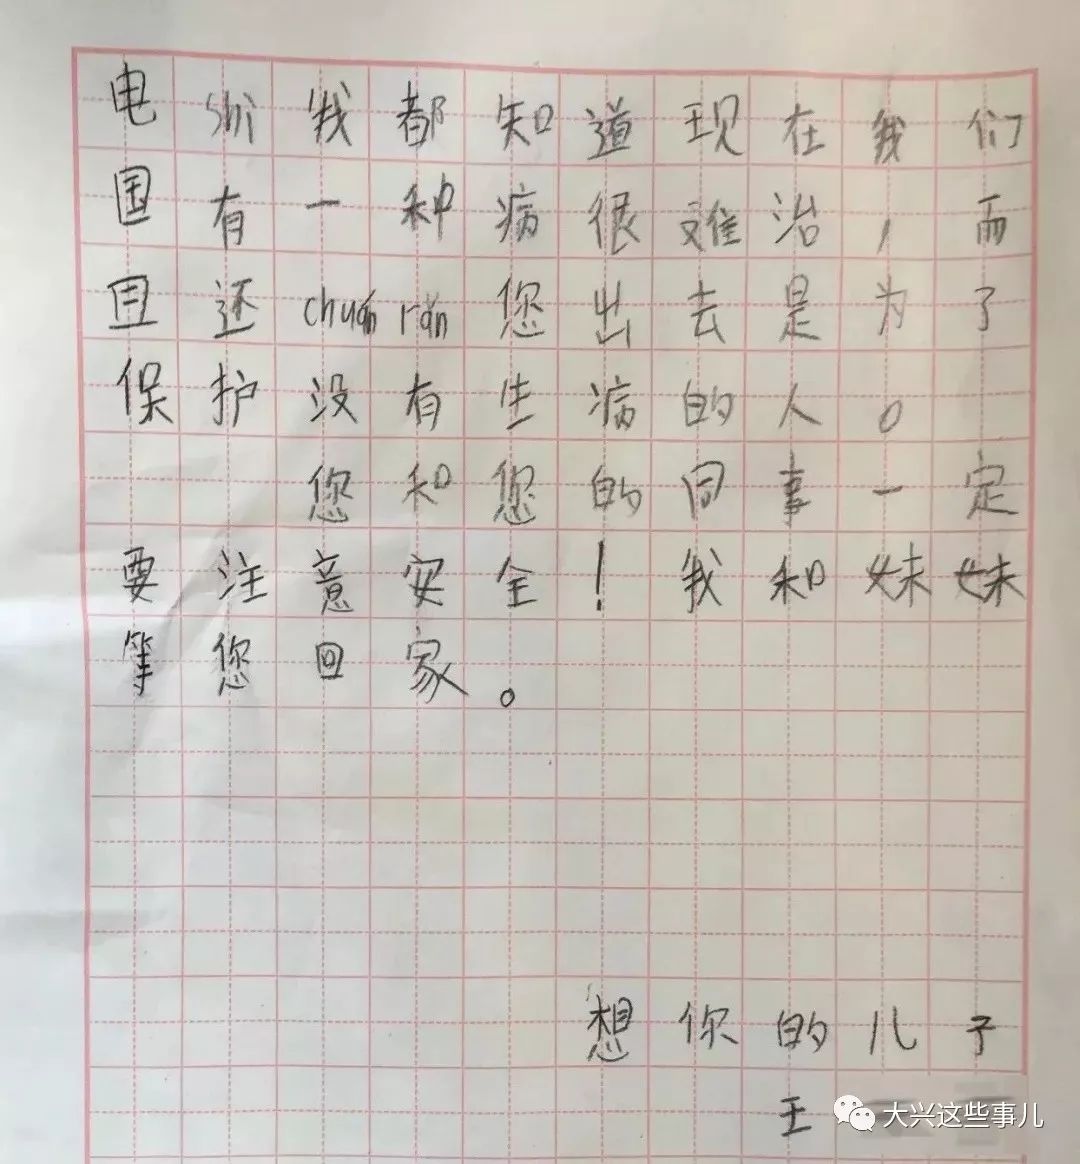 电shì我都知道现在我们
国有一种病很难治，而
且还chuánrǎn您出去是为了
保护没有生病的人。
您和您的同事一定
要注意安全！我和妹妹
等您回家。
想你的儿子
王
大兴这些事儿